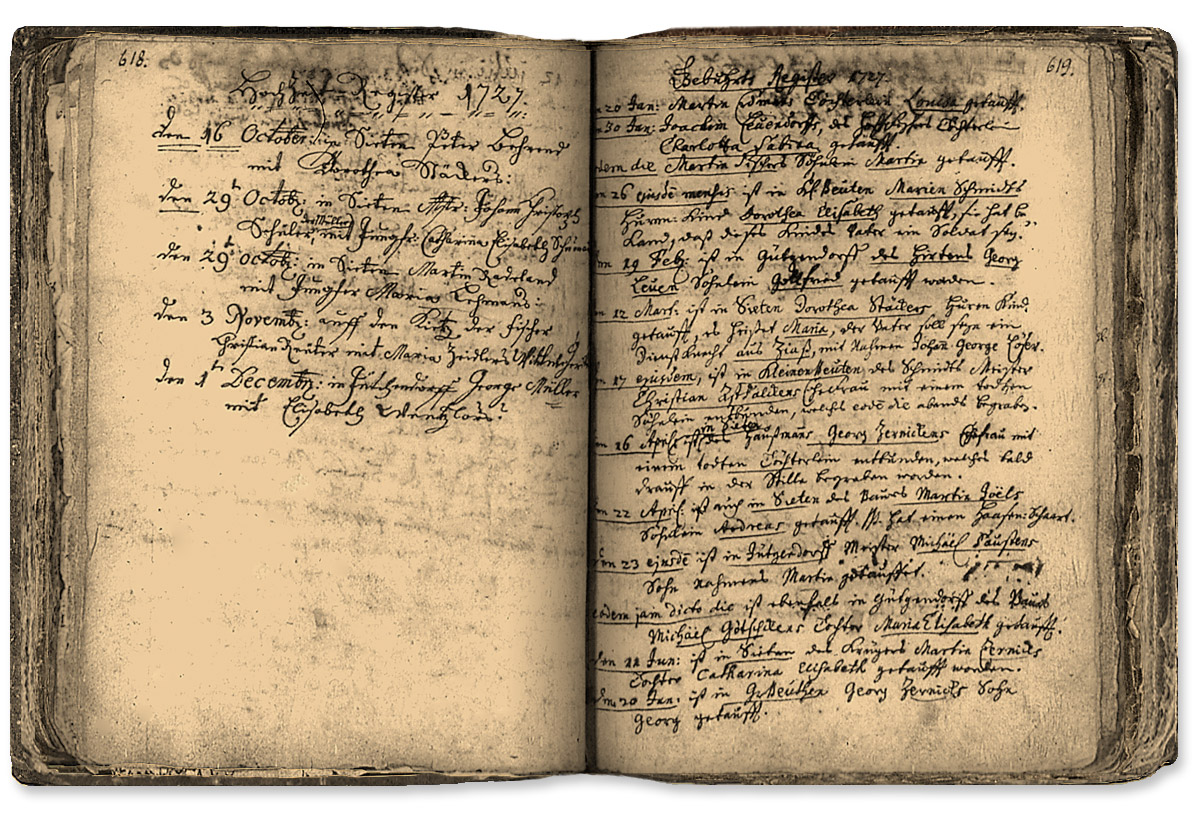 618.
Hochzeit-Register 1727.
den 16 October: in Sieten Peter Behrend
mit Dorothea Städers:
den 29 Octob: in Sieten Mstr: Johann Christoph
der Müller
Schüler, mit Jungfr: Catharina Elisabeth
den 29 Octob: in Sieten Martin Radeland
mit Jungfer Maria Lehmans:
den 3 Novembr: auff den Kietz der Fischer
Christian Reuter mit Maria Zeidlers
den 1 Decembr: in George Müller
mit Elisabeth
619.
Gebuhrts Register 1727.
20 Jan: Martin Töchterlein Louisa getaufft.
30 Jan: Joachim des Töchterlein
Charlotta Sabina getaufft.
die Martin Fischers Söhnlein Martin getaufft.
26 ejusdē menses ist in Kl Beuten Marien Schmidts
Huren: Kind Dorothea Elisabeth getaufft, sie hat
daß dieses Kindes Vater ein Soldat sey.
19 Feb: ist in Gützgendorff des Hirtens Georg
Leuen Söhnlein Gottfried getaufft worden.
12 Mart: ist in Sieten Dorothea Städers Huren Kind
getaufft, es heißet Maria, der Vater soll seyn ein
Dienstknecht aus mit Nahmen Johan George
17 ejusdem, ist in Kleinen Beuten des Schmidts Meister
Christian Ehefrau mit einem todten
Söhnlein entbunden, welches eodē die abends begraben.
in Sieten
16 April ist des Haußmans Georg Zernickens Ehefrau mit
einem todten Töchterlein entbunden, welches bald
drauff in der Stille begraben worden.
22 April: ist auch in Sieten des Baurs Martin Joëls
Söhnlein Andreas getaufft. hat einen Haasen:Schaart.
23 ejusdē ist in Gützgendorff Meister Michäel Faustens
Sohn nahmens Martin getauffet.
eodem jam dicto die ist ebenfalls in Gützgendorff des Baurs
Michäel Götschkens Tochter Maria Elisabeth getaufft.
den 22 Jun: ist in Sieten des Krügers Martin Zernicks
Tochter Catharina Elisabeth getaufft worden.
20 Jun: ist in Gr Beuthen Georg Zernicks Sohn
Georg getaufft.